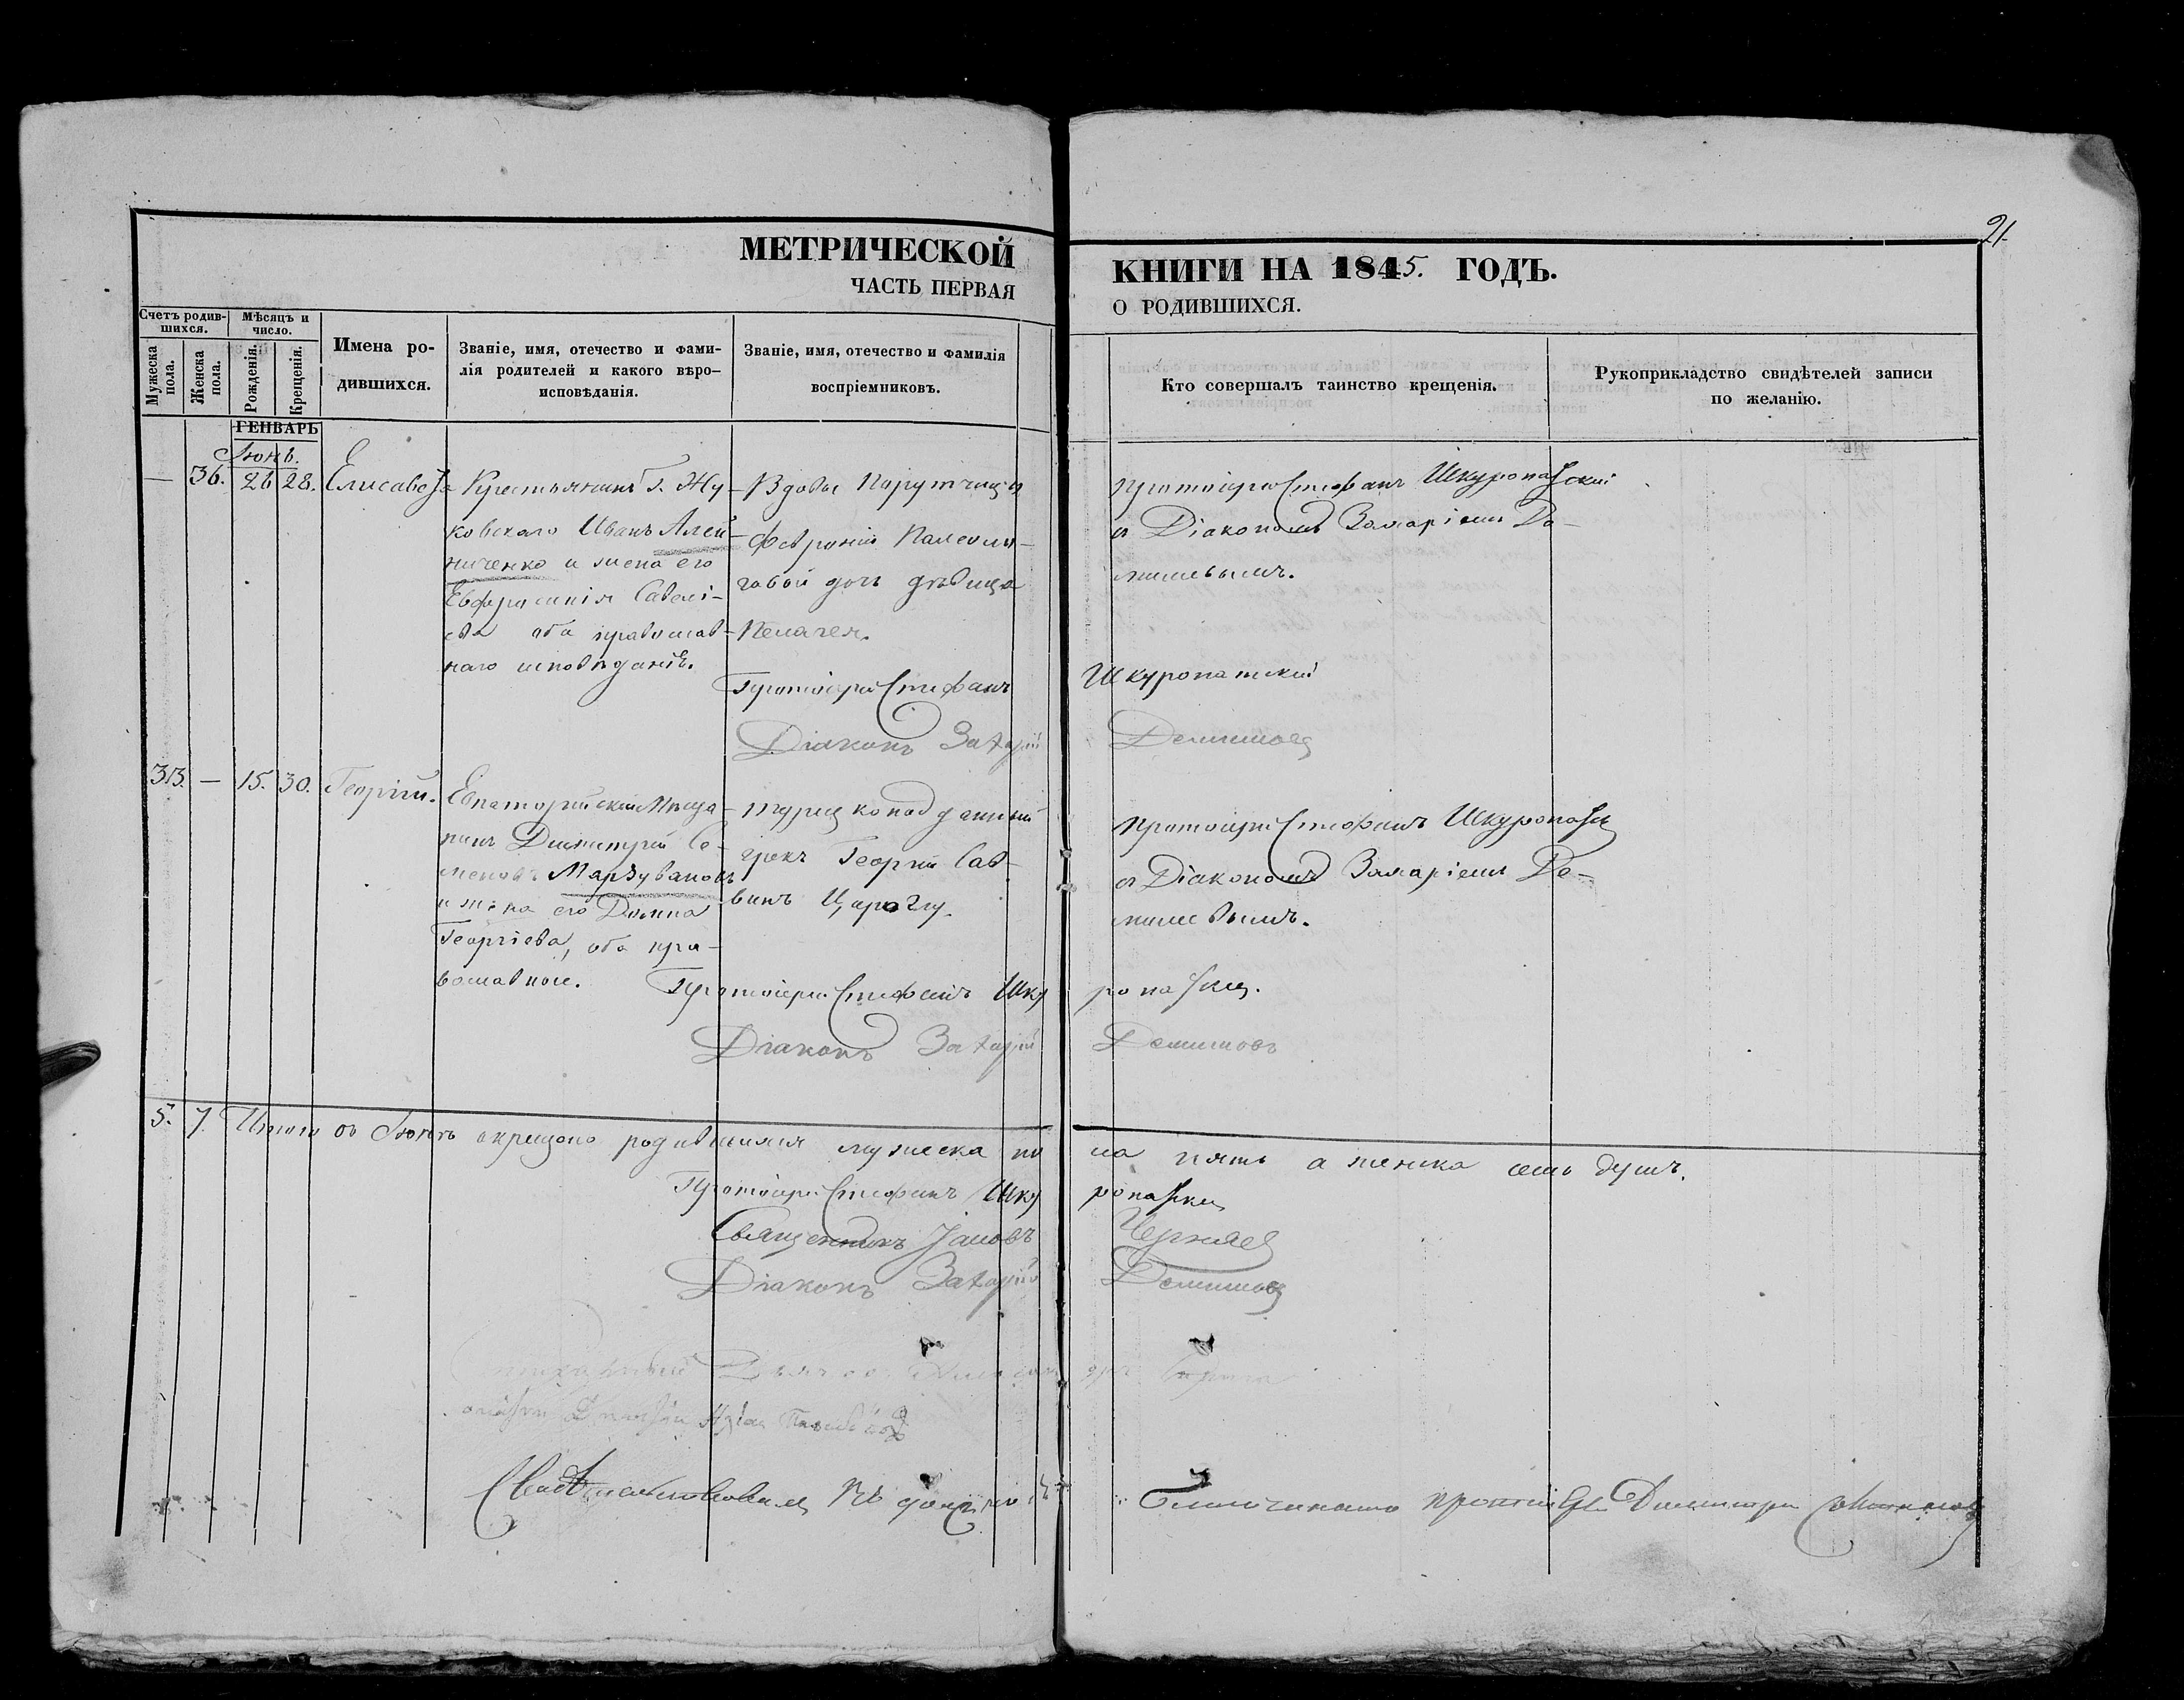 21.
МЕТРИЧЕСКОЙ
ЧАСТЬ ПЕРВАЯ
КНИГИ НА 1845. ГОДЪ.
О РОДИВШИХСЯ.
Счетъ родив-
шихся.
Мужеска пола.
Женска пола.
Мѣсяцъ и
число.
Рожденія.
Крещенія.
Имена ро-
дившихся.
Званіе, имя, отечество и фами-
лія родителей и какого вѣро-
исповѣданія.
Званіе, имя, отечество и фамилія
воспріемниковъ.
Кто совершалъ таинство крещенія.
Рукоприкладство свидѣтелей записи
по желанію.
ГЕНВАРЬ
Іюнь.
— 36. 26 28. Елисавета
Крестьянинъ Г. Жу-
ковскаго Иванъ Алей-
ниченко и жена его
Евфросинія Савелі-
ева оба православ-
наго исповѣданія.
Вдовы Порутчицы
Февроніи
гавой дочь дѣвица
Пелагея.
Протоіерей Стефанъ Шкуропатскій
съ Діакономъ Захаріемъ Де-
мишевымъ.
Протоіерей Стефанъ Шкуропатскій
Діаконъ Захарій Демишевъ
33. — 15. 30. Георгій.
Евпаторійскій Мѣща-
нинъ Димитрій Се-
меновъ Марзувановъ
и жена его Домна
Георгіева, оба пра-
вославные.
турецкоподданный
грекъ Георгій Сав-
винъ Цароглу.
Протоіерей Стефанъ Шкуропатскій
съ Діакономъ Захаріемъ Де-
мишевымъ.
Протоіерей Стефанъ Шкуропатскій.
Діаконъ Захарій Демишевъ
5. 7. Итого въ Іюнѣ окрещено родившихся мужеска пола пять а женска семь душъ.
Протоіерей Стефанъ Шкуропатскій
Священникъ Іаковъ Черняев
Діаконъ Захарій Демишевъ
Свидѣтельствовалъ Благочинный протоіерей Димитрій